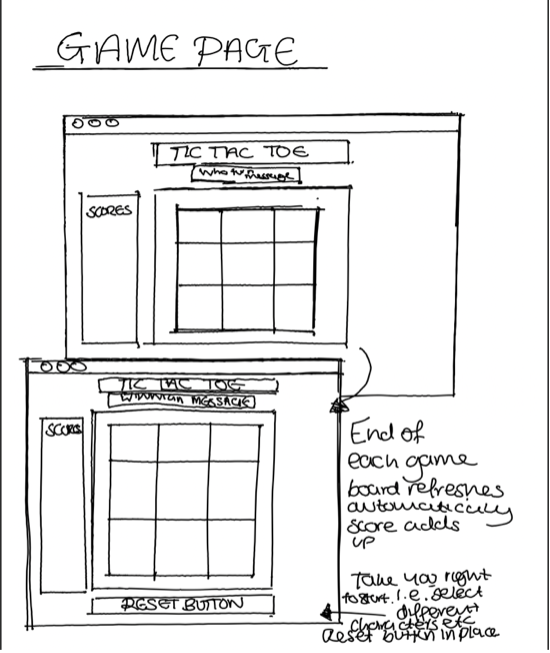 GAME PAGE
TIC TAC TOE
Message
SCORES
TIC TAC TOE
MESSAGE
SCORES
End of
each game
board refreshes
automatically
score adds
up
RESET BUTTON
Take you right
to start. i.e. select
different
characters etc
Reset button in place